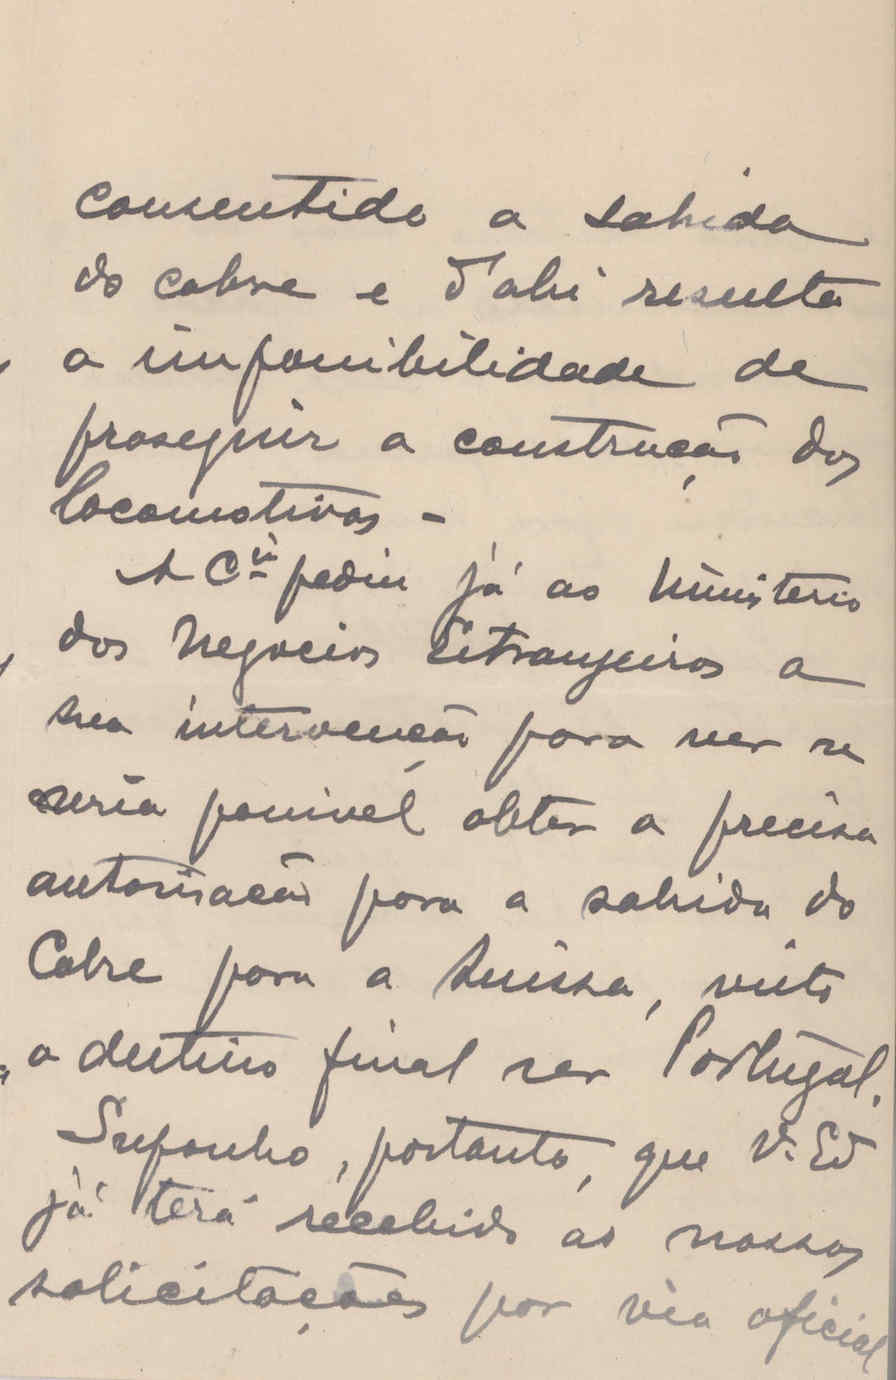 consentido a sahida
do cobre e d'ahi resulta
a impossibilidade de
proseguir a construção das
locomotivas -
A Cia pediu já ao Ministerio
dos Negocios Estrangeiros a
sua intervenção para ver se
seria possivel obter a precisa
autorisação para a sahida do
Cobre para a Suissa, visto
o destino final ser Portugal.
Supponho, portanto, que V. Ex
já terá recebido as nossas
solicitações por via oficial